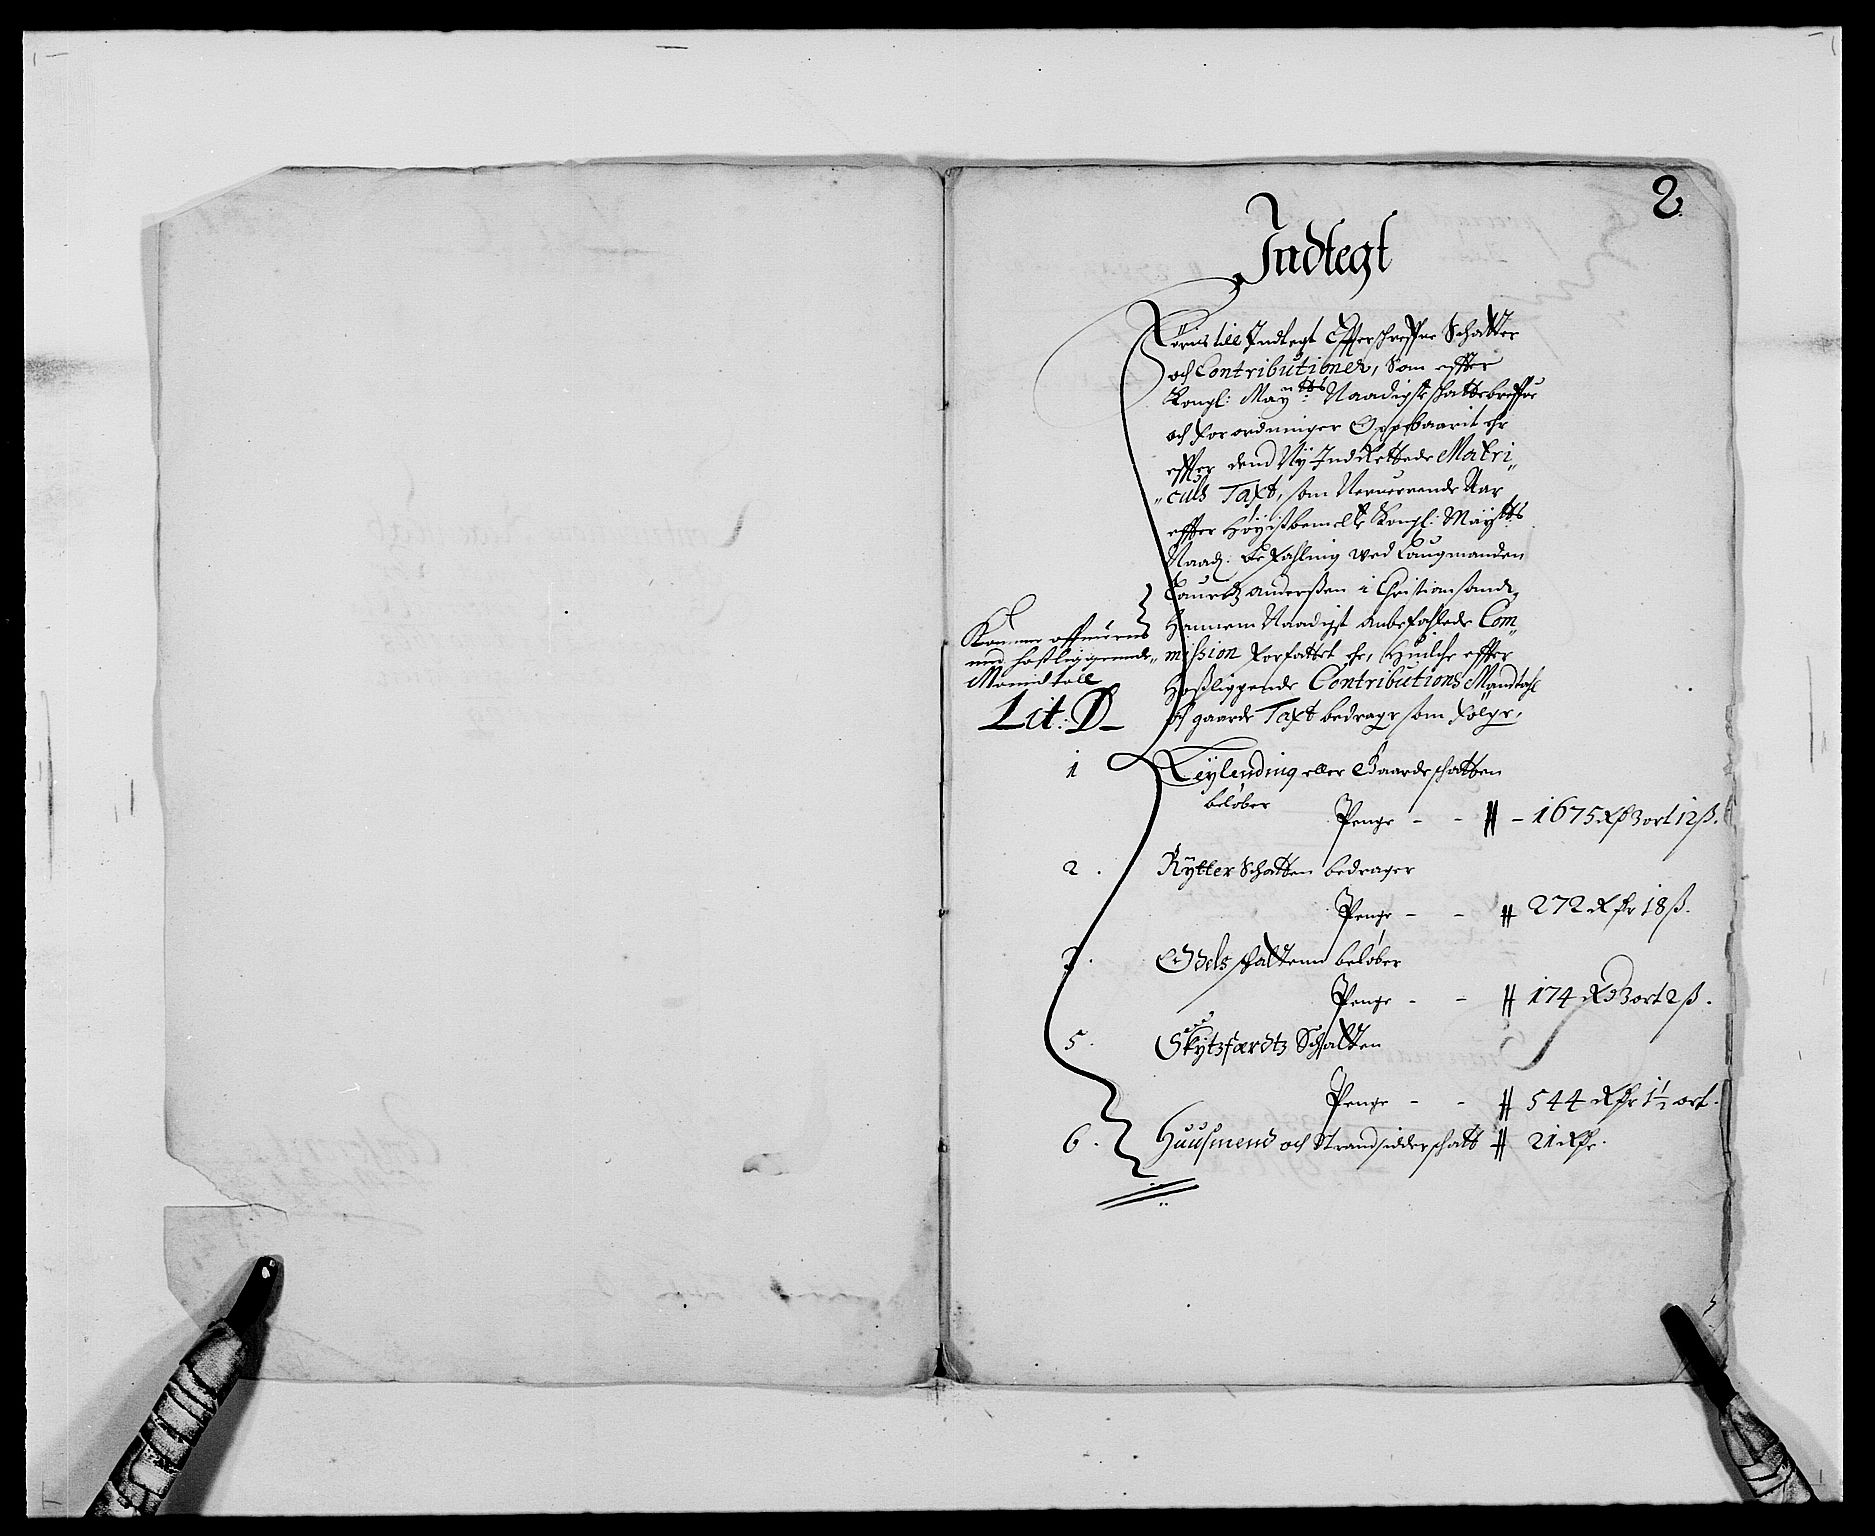 2
Indtegt
Föris till Indtegt Effterschreffne Schatter
och Contributioner, Som effter
Kongl: May:tts Naadigste schattebreffue
och forordninger Oppebaarit ehr
effter dend Ny IndRettede Matri„
„culs Taxt, som Neruerende Aar
effter Höyistbemelte Kongl: Maÿtts
Naad: befahling wed Laugmanden
Lauretz Anderßen i Christiansandt,
Hannem Naadigst Anbefahlede Com„
mission forfattet ehr, Huilche effter
Hoßliggende Contributions Mandtahl
och gaarde Taxt bedrager som fölger,
Kommer offuerens
med hoßliggende„
Mandtall
Lit: D
1 Leÿlending eller Gaardeschatten
belöber
Penge - - # - 1675 Rdr 3 ort 12 ß.
2. Rÿtter Schatten bedrager
Penge - - # 272 Rdr 18 ß.
3. Odels schattenn belöber
Penge - - # 174 Rd 3 ort 2 ß.
5. Skÿtzfærdtz Schatten
Penge - - # 544 Rdr 1½ ort.
6. Huusmend och Strandsidderschatt # 21 Rdr.